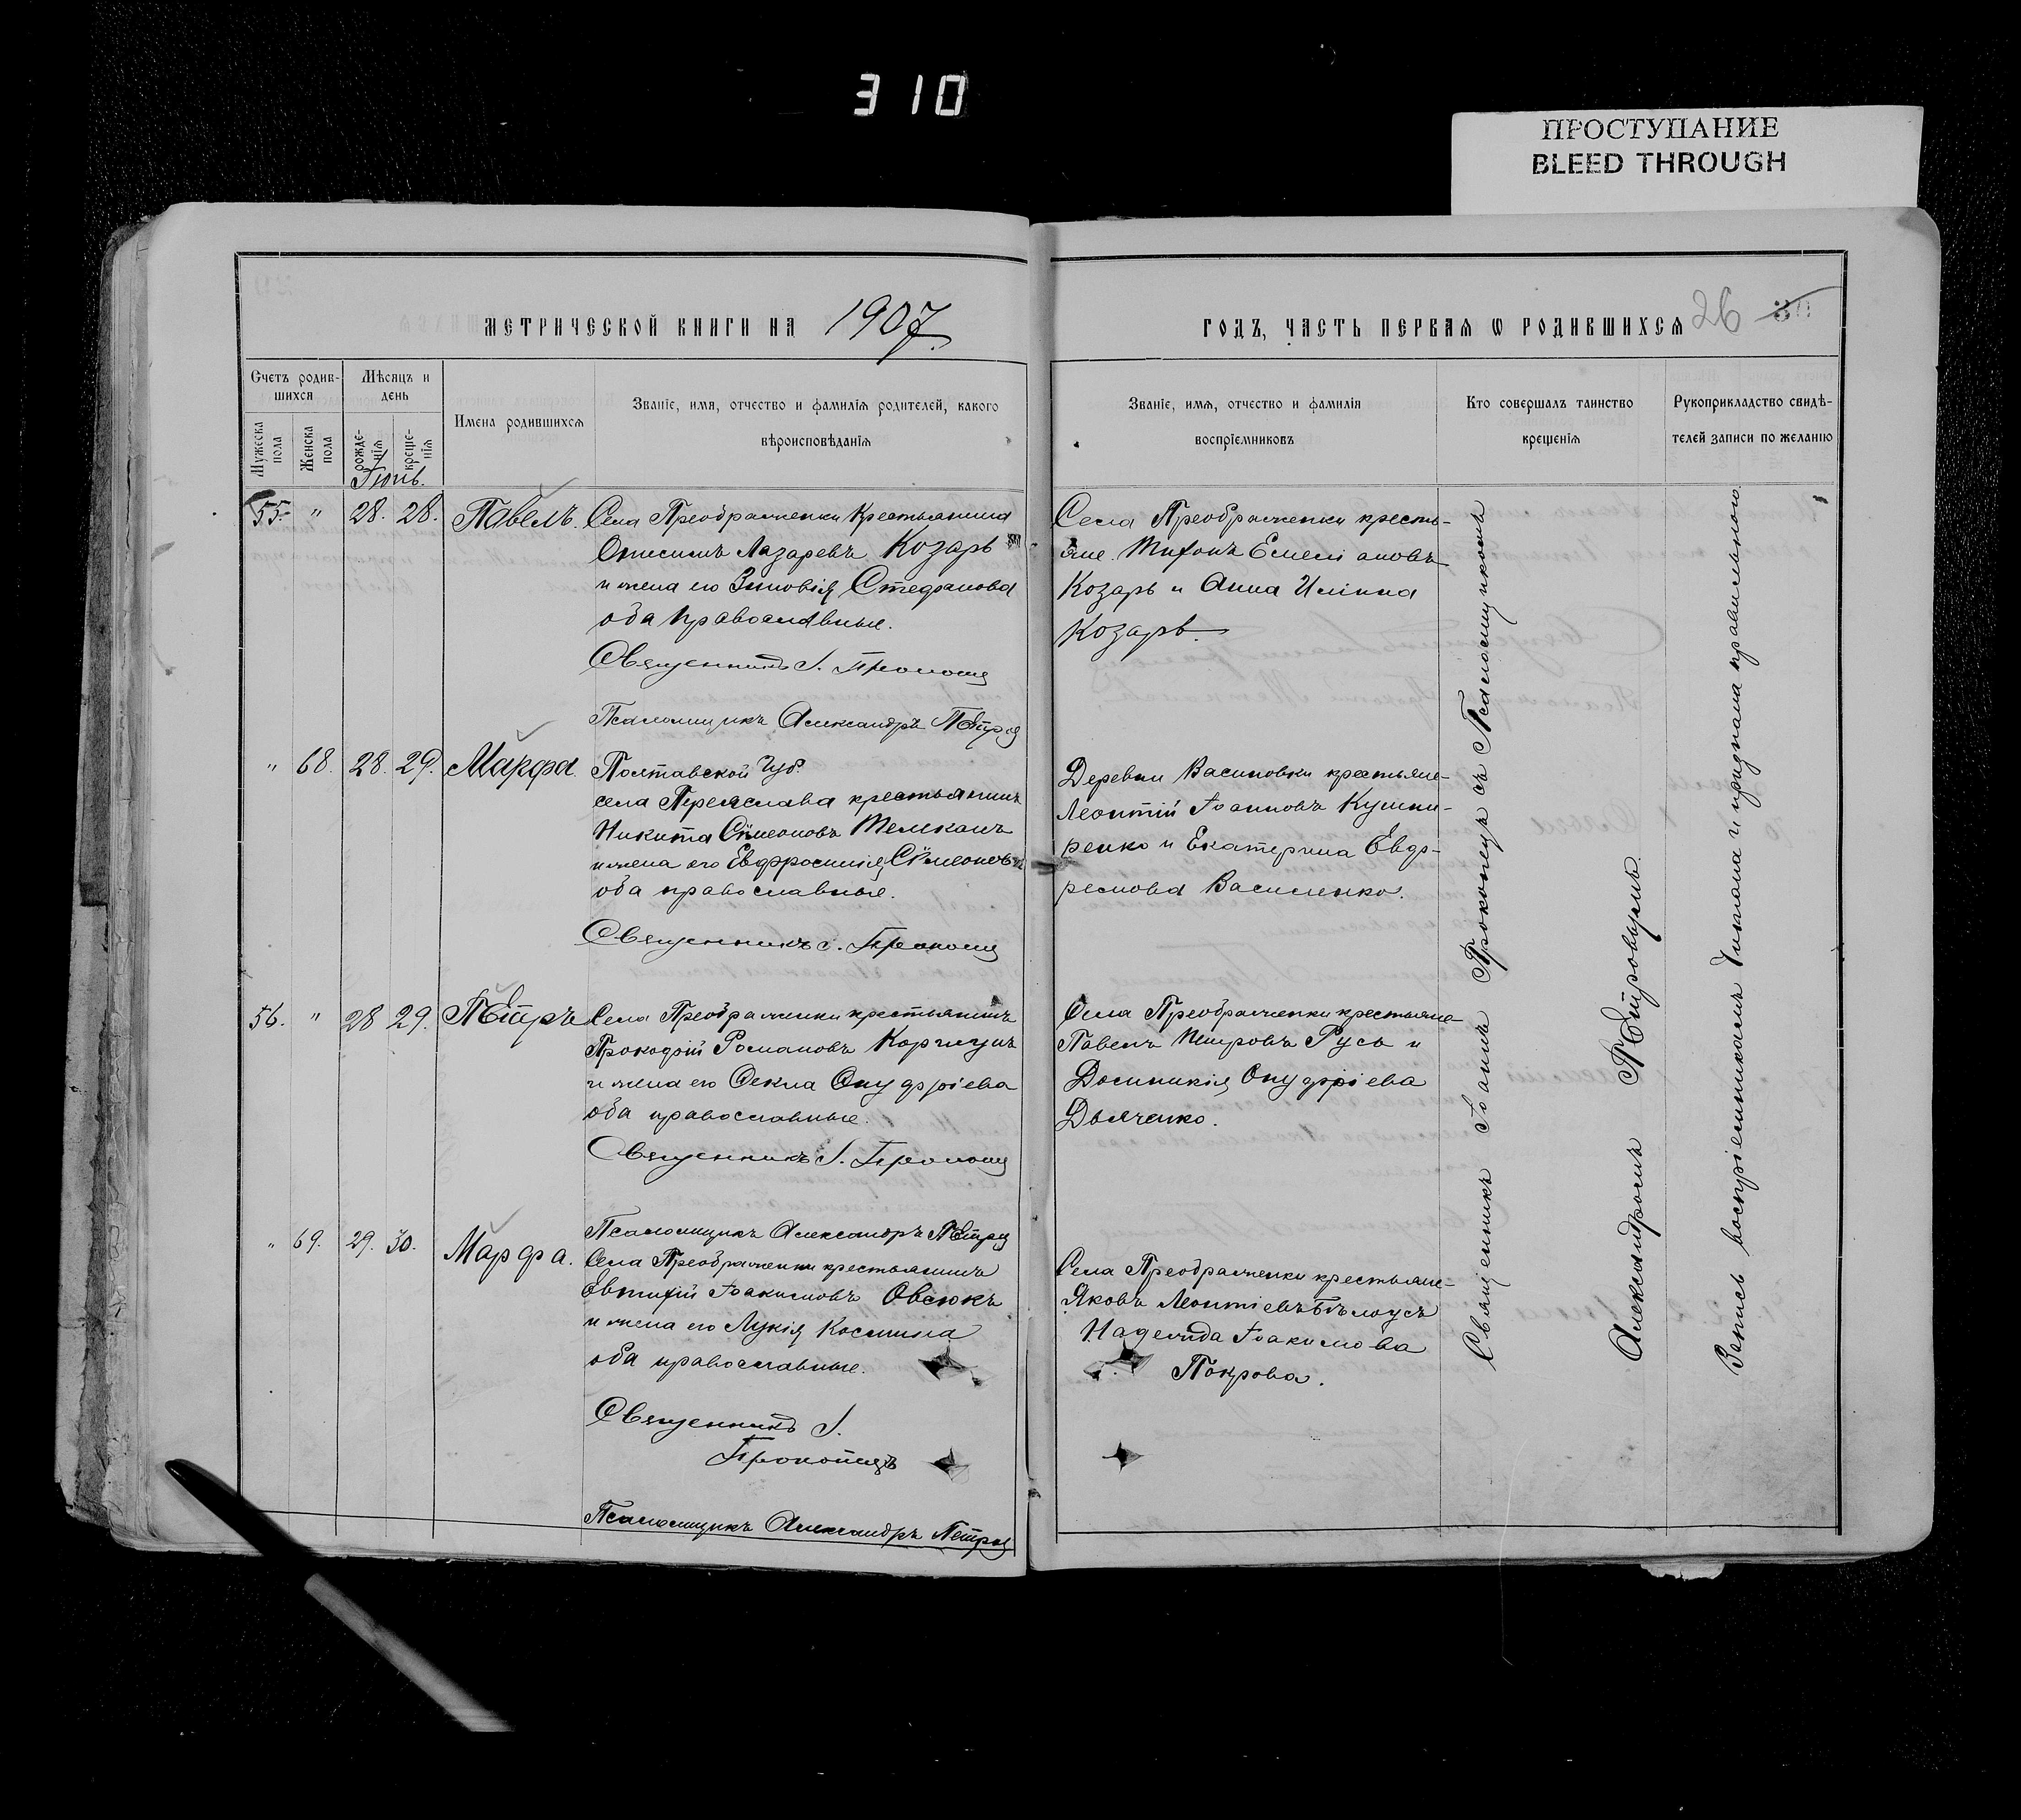 310
ПРОСТУПАНИЕ
BLEED THROUGH
МЕТРИЧЕСКОЙ КНИГИ НА 1907.
Счетъ родив-
шихся
Мѣсяцъ и
день
Имена родившихся
Званіе, имя, отчество и фамилія родителей, какого
вѣроисповѣданія
Мужеска
пола
Женска
пола
рожде-
нія
креще-
нія
Іюнь.
55. " 28. 28. Павелъ.
Села Преображенки крестьянинъ
Онисимъ Лазаревъ Козарь
и жена его Зиновія Стефанова
оба православные.
Священникъ І. Прокопец
Псаломщикъ Александръ Петров
" 68. 28. 29. Марфа.
Полтавской Губ.
села Переяслава крестьянинъ
Никита Симеоновъ
и жена его Евфросинія
оба православные.
Священникъ І. Прокопец
56. " 28 29. Петръ
Села Преображенки крестьянинъ
Прокофій Романовъ Коржунъ
и жена его Фекла Онуфріева
оба православные.
Священникъ І. Прокопец
Псаломщикъ Александръ Петров
" 69. 29. 30. Марфа.
Села Преображенки крестьянинъ
Евтихій Іоакимовъ Овсюкъ
и жена его Лукія Космина
оба православные.
Священникъ І.
Прокопецъ
Псаломщикъ Александръ Петров
ГОДЪ, ЧАСТЬ ПЕРВАЯ Ѡ РОДИВШИХСЯ
26 30
Званіе, имя, отчество и фамилія
воспріемниковъ
Кто совершалъ таинство
крещенія
Рукоприкладство свидѣ-
телей записи по желанію
Села Преображенки кресть-
яне Тихонъ Емеліановъ
Козарь и Анна Иліина
Козарь.
Деревни Васиновки крестьяне
Леонтій Іоанновъ Кушни-
ренко и Екатерина Евф-
ремова Василенко.
Села Преображенки крестьяне
Павелъ Петровъ Русь и
Домникія Онуфріева
Дьяченко.
Села Преображенки крестьяне
Яковъ Леонтіевъ Бѣлоусъ
Надежда Іоакимова
Покрова.
Священникъ Іоаннъ Прокопецъ съ Псаломщикомъ
Александромъ Петровцимъ.
Запись воспріемникамъ читана и признана правильною.